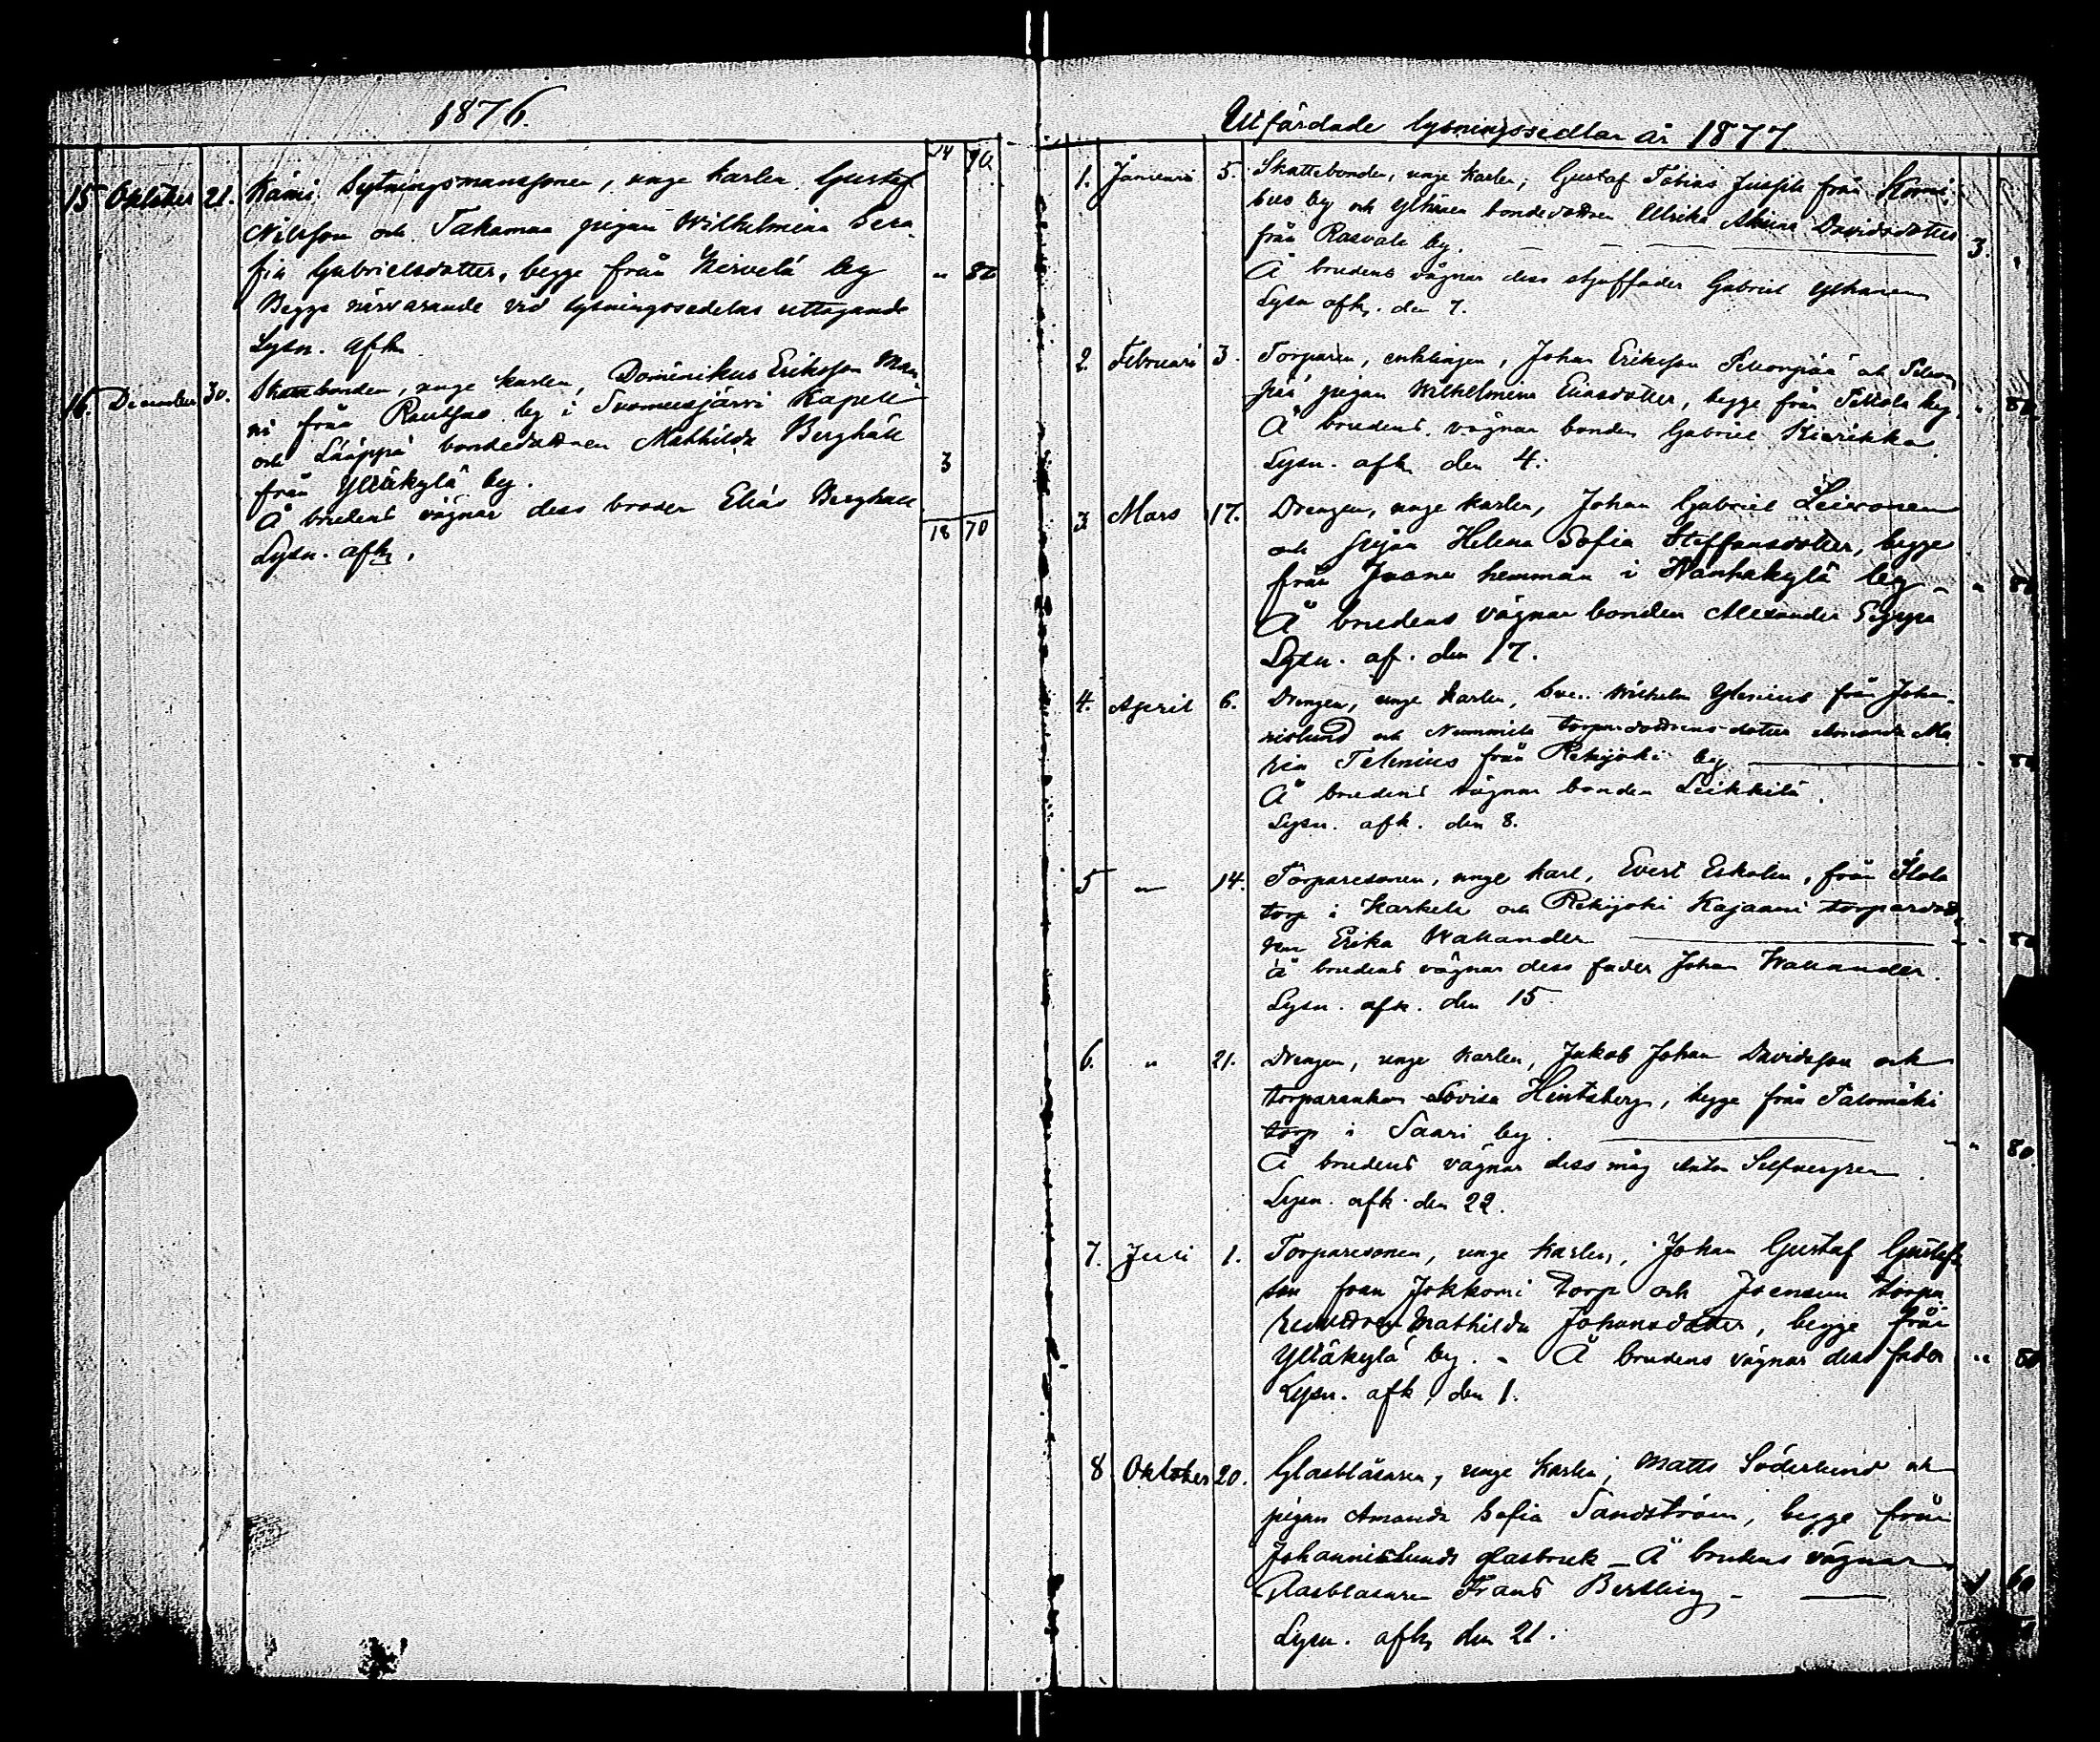 1876.
14 90
15 Oktober 21. Kämi sytningsmanssonen, unge karlen Gustaf
Nilsson och Takamaa pigan Wilhelmina Sera-
fia Gabrielsdotter, begge från Hirvelä by " 80
Begge närvarande vid lysningssedelns uttagande
Lysn. afk.
16. December 30. Skattebonden, unge karlen, Dominikus Eriksson Man-
ni från Rautsuo by i Suomusjärvi Kapell
och Lääppä bondedottren Mathilda Berghäll 3
från Ylläkylä by.
Å brudens vägnar dess broder Elias Berghäll
18 70
Lysn. afk.
Utfärdade lysningssedlar år 1877
1. Januari 5. Skattebonden, unge karlen, Gustaf Tobias Jussila från Komi-
suo by och Ylhäisen bondedottren Ulrika Davidsdotter
från Rasvala by. 3.
Å brudens vägnar dess styffader Gabriel Ylhänen
Lysn afk. den 7.
2. Februari 3. Torparen, enklingen, Johan Eriksson och
pigan Wilhelmina Eliasdotter, begge från by. " 80
Å brudens vägnar bonden Gabriel Kiarikka.
Lysn. afk. den 4.
3. Mars 17. Drengen, unge karlen, Johan Gabriel Leivonen
och pigan Helena Sofia Steffansdotter, begge
från Juana hemman i Wanhakylä by " 80
Å brudens vägnar bonden Alexander Seppä
Lysn. af. den 17.
4. April 6. Drengen, unge karlen, Wilhelm Ylenius från Johan-
nislund och Nummila torparedottrens dotter Amanda Ma-
ria Telenius från Rekijoki by " 80
Å brudens vägnar bonden Leikkilä.
Lysn. afk. den 8.
5 " 14. Torparesonen, unge karl, Evert Eskolin, från Ilola
torp i Karkela och Rekijoki Kajaani torpardott-
ren Erika Wallander " 80
Å brudens vägnar dess fader Johan Wallander.
Lysn. afk. den 15
6. " 21. Drengen, unge karlen, Jakob Johan Davidsson och
torparenkan Lovisa Hintsberg, begge från Talomäki
torp i Saari by. " 80.
Å brudens vägnar dess måg Anton Selfvergren.
Lysn. afk. den 22.
7. Juli 1. Torparesonen, unge karlen, Johan Gustaf Gustafs-
son från Jokkomi torp och Joensuu torpa-
redottren Mathilda Johansdotter, begge från
Ylläkylä by. - Å brudens vägnar dess fader " 80
Lysn. afk. den 1.
8 Oktober 20. Glasblåsaren, unge karlen, Matts Söderlund och
pigan Amanda Sofia Sandström, begge från
Johannislunds glasbruk - Å brudens vägnar
Glasblåsaren Frans Bertling - 1 60
Lysn. afk. den 21.